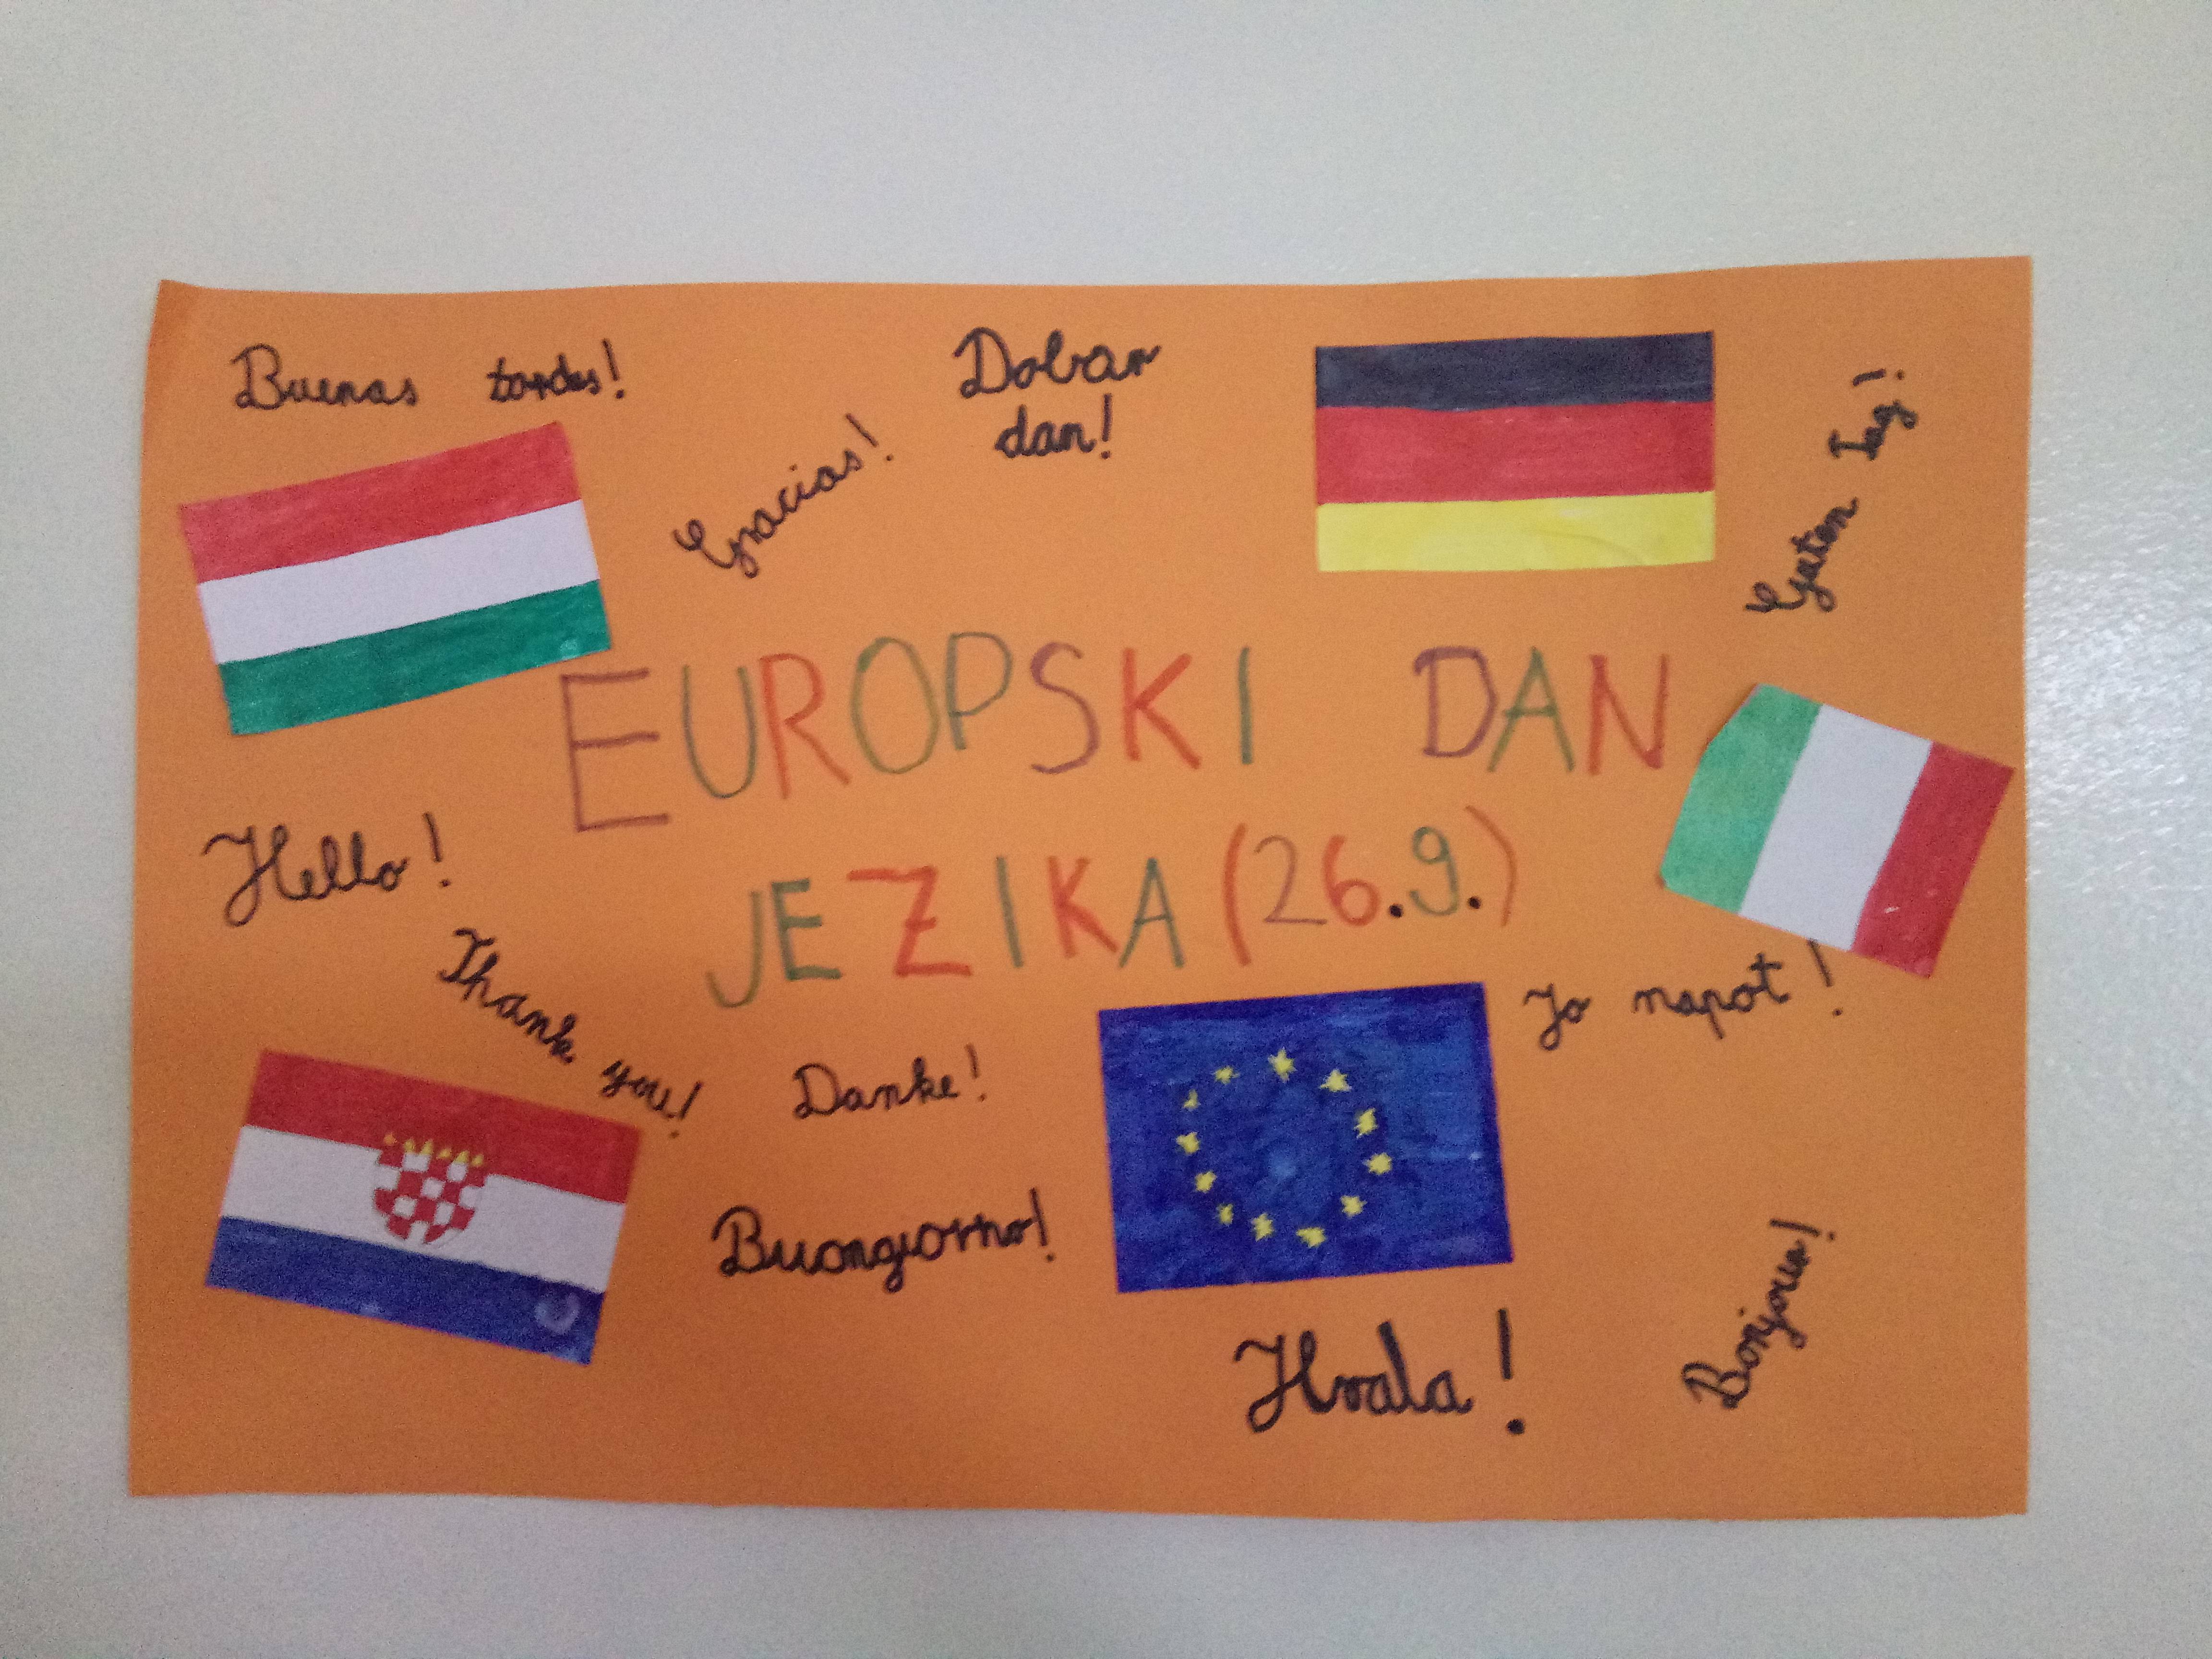 Buenas tardes!
Gracias!
Dobar
dan!
Guten Tag!
EUROPSKI DAN
JEZIKA (26.9.)
Hello!
Thank you!
Danke!
Jo napot!
Buongiorno!
Hvala!
Bonjour!